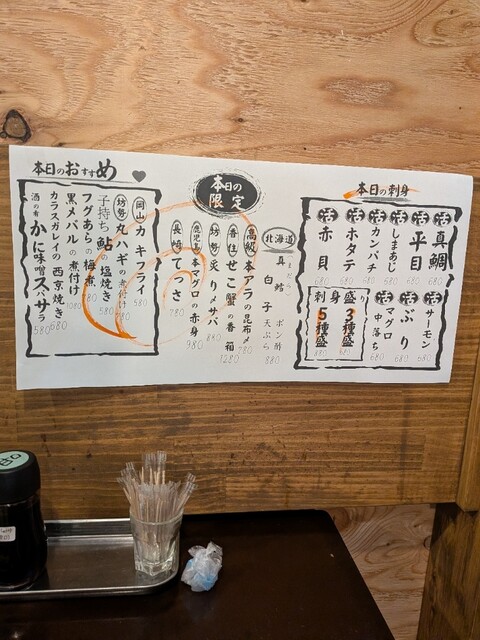 本日の刺身
活 真鯛 680
活 平目 680
活 しまあじ 680
活 カンパチ 680
活 ホタテ 680
活 赤貝 680
活 サーモン 680
活 ぶり 680
マグロ中落ち 680
刺身盛り
3種盛 680
5種盛 880
本日の限定
北海道 真鱈 まだら 白子 ポン酢 天ぷら 880
高級 本アラの昆布〆 780
香住 せこ蟹の香箱 1280
坊勢 炙り〆サバ 880
鹿児島 本マグロの赤身 980
長崎 てっさ 780
本日のおすすめ
岡山 カキフライ 580
坊勢 丸ハギの煮付け 780
子持ち鮎の塩焼き 580
フグあらの梅煮 780
黒メバルの煮付け 1080
カラスガレイの西京焼き 680
酒の肴 かに味噌ズバサラ 580